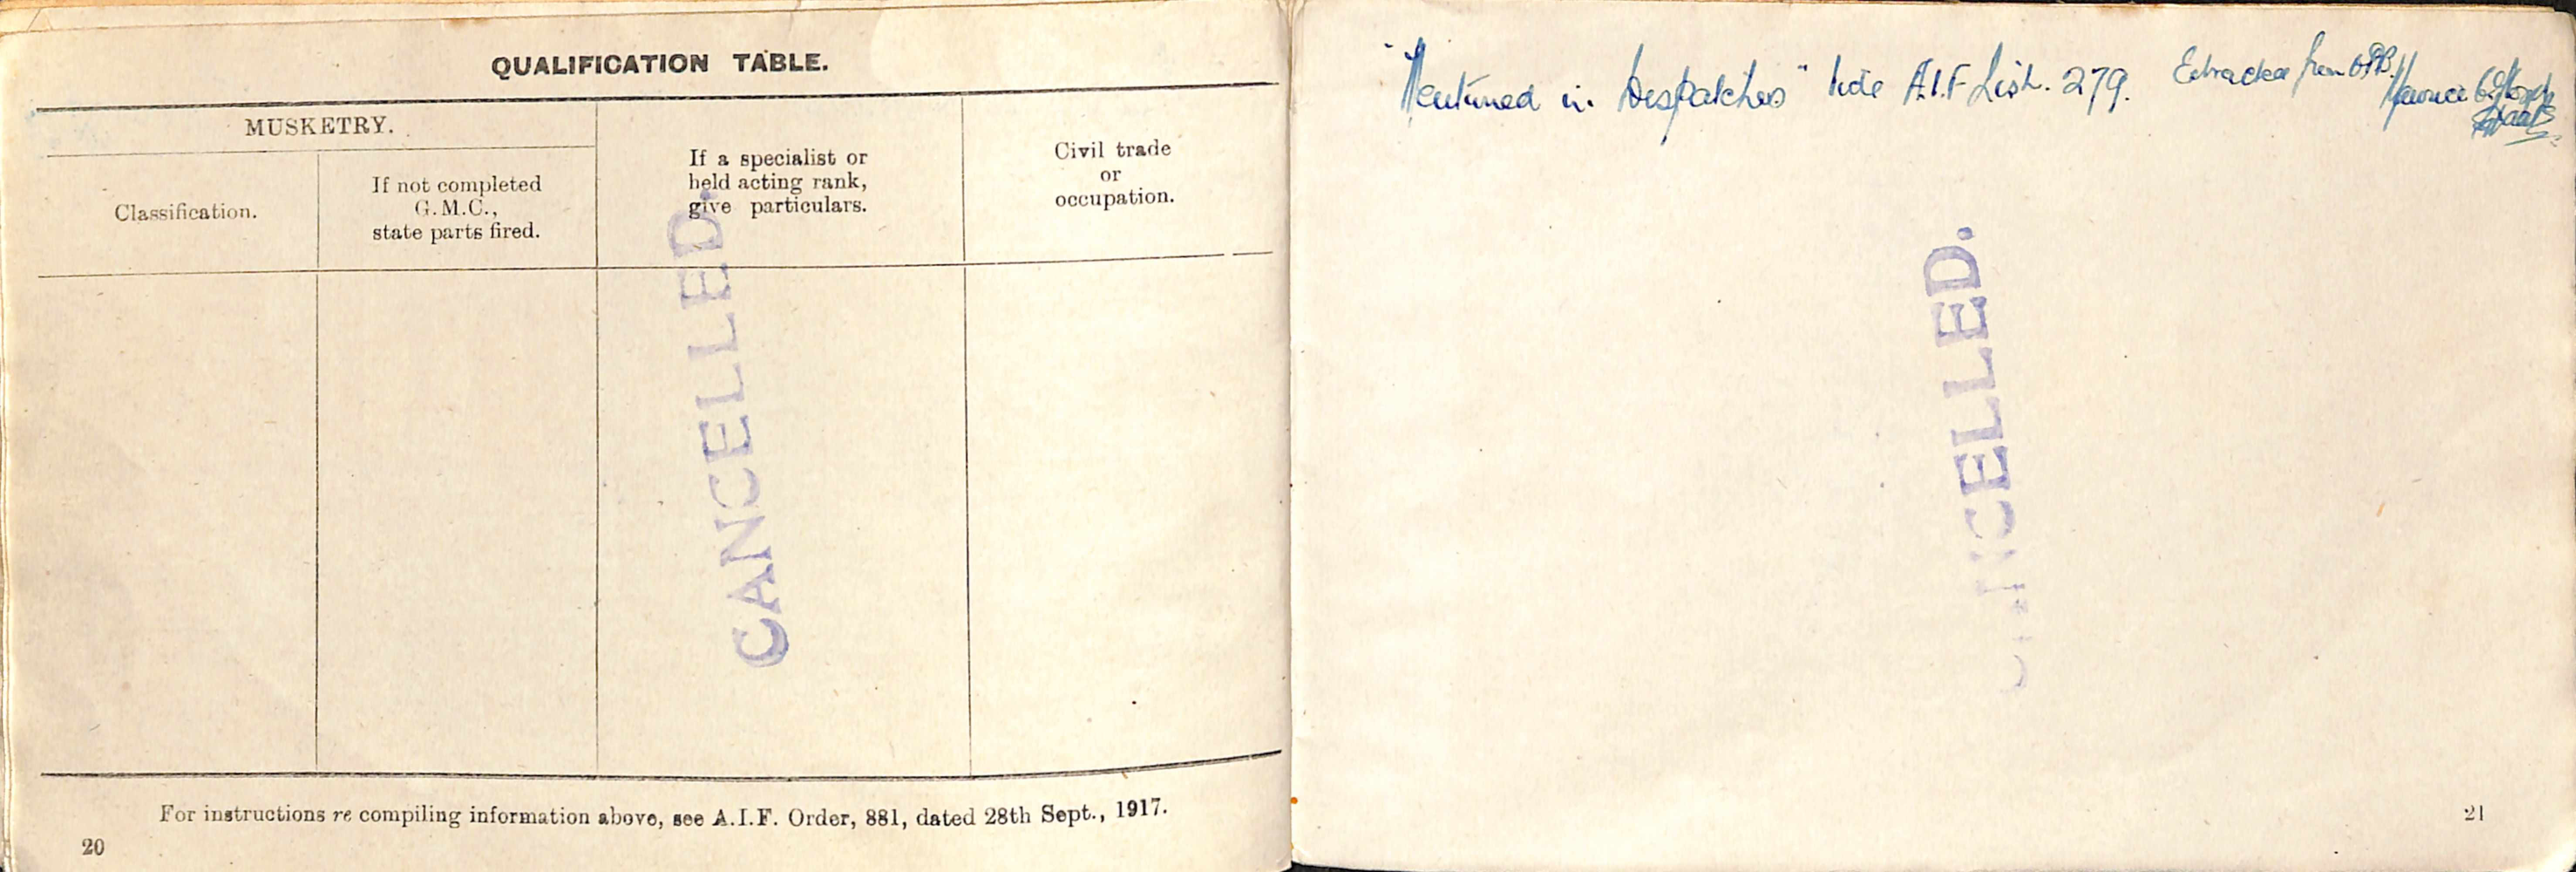 QUALIFICATION TABLE.
MUSKETRY.
Classification.
If not completed
G.M.C.,
state parts fired.
If a specialist or
held acting rank,
give particulars.
Civil trade
or
occupation.
CANCELLED.
For instructions re compiling information above, see A.I.F. Order, 881, dated 28th Sept., 1917.
20
"Mentioned in Despatches" Vide A.I.F List. 279. Extracted from
CANCELLED.
21